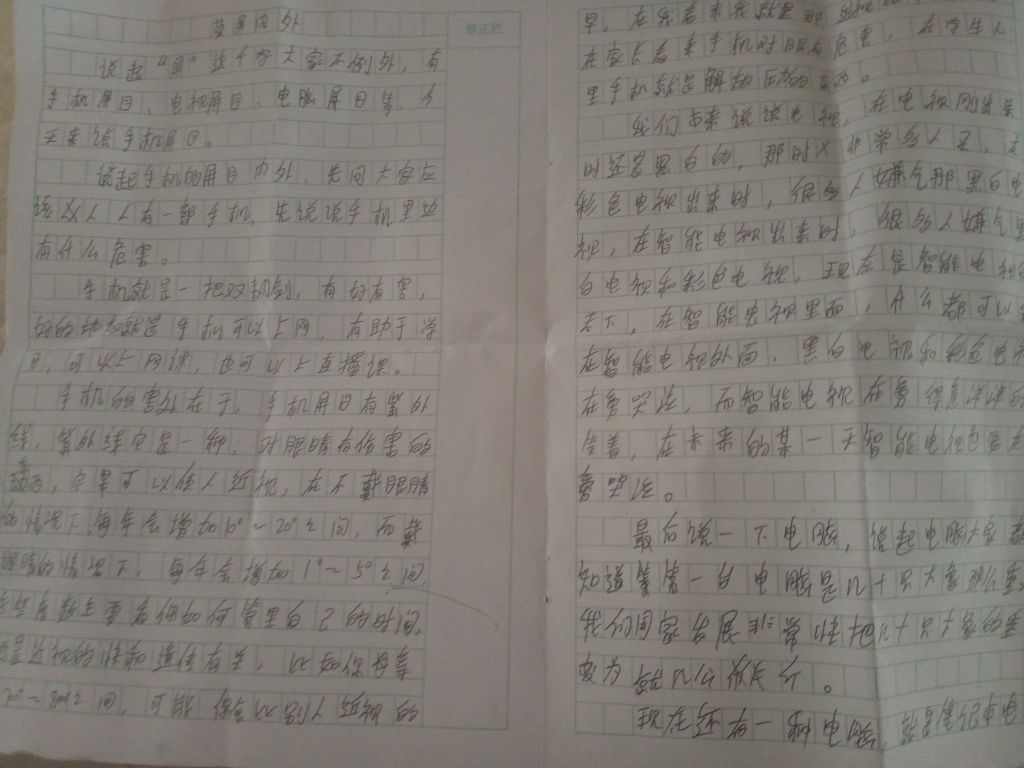 荧屏内外
修正栏
说起“屏”这个字大家不例外，有
手机屏目、电视屏目、电脑屏目等，今
天来说手机屏目。
说起手机的屏目内外，先问大家应
该人人有一部手机，先说说手机里边
有什么危害。
手机就是一把双机剑，有好有害，
好的地方就是手机可以上网，有助于学
习，可以上网课，也可以上直播课。
手机的害处在于，手机屏目有紫外
线，紫外线它是一种，对眼睛有伤害的
它是可以使人近视，在不戴眼睛
的情况下，每年会增加10°～20°之间，而戴
眼睛的情况下，每年会增加1°～5°之间，
主要看你如何管里自己的时间，
是近视的快和遗传有关，比如你母亲
之间，可能你会比别人近视的
早，在我看来我就是那
在家长看来手机对眼有危害，在学生人
里手机就是解放的东西。
我们再来说说电视，在电视刚出来
时还是黑白的，那时人非常多人买，
彩色电视出来时，很多人嫌气那黑白电
视，在智能电视出来时，很多人嫌气黑
白电视和彩色电视，现在是智能电视
天下，在智能电视里面，什么都可以
在智能电视外面，黑白电视和彩色电
在哭泣，而智能电视在得意洋洋的
坐着，在未来的某一天智能电视也要
哭泣。
最后说一下电脑，说起电脑大家都
知道第一台电脑是几十只大象那么重
我们国家发展非常快把几十只大象的重
变为几公张尺斤。
现在还有一种电脑，就是笔记本电